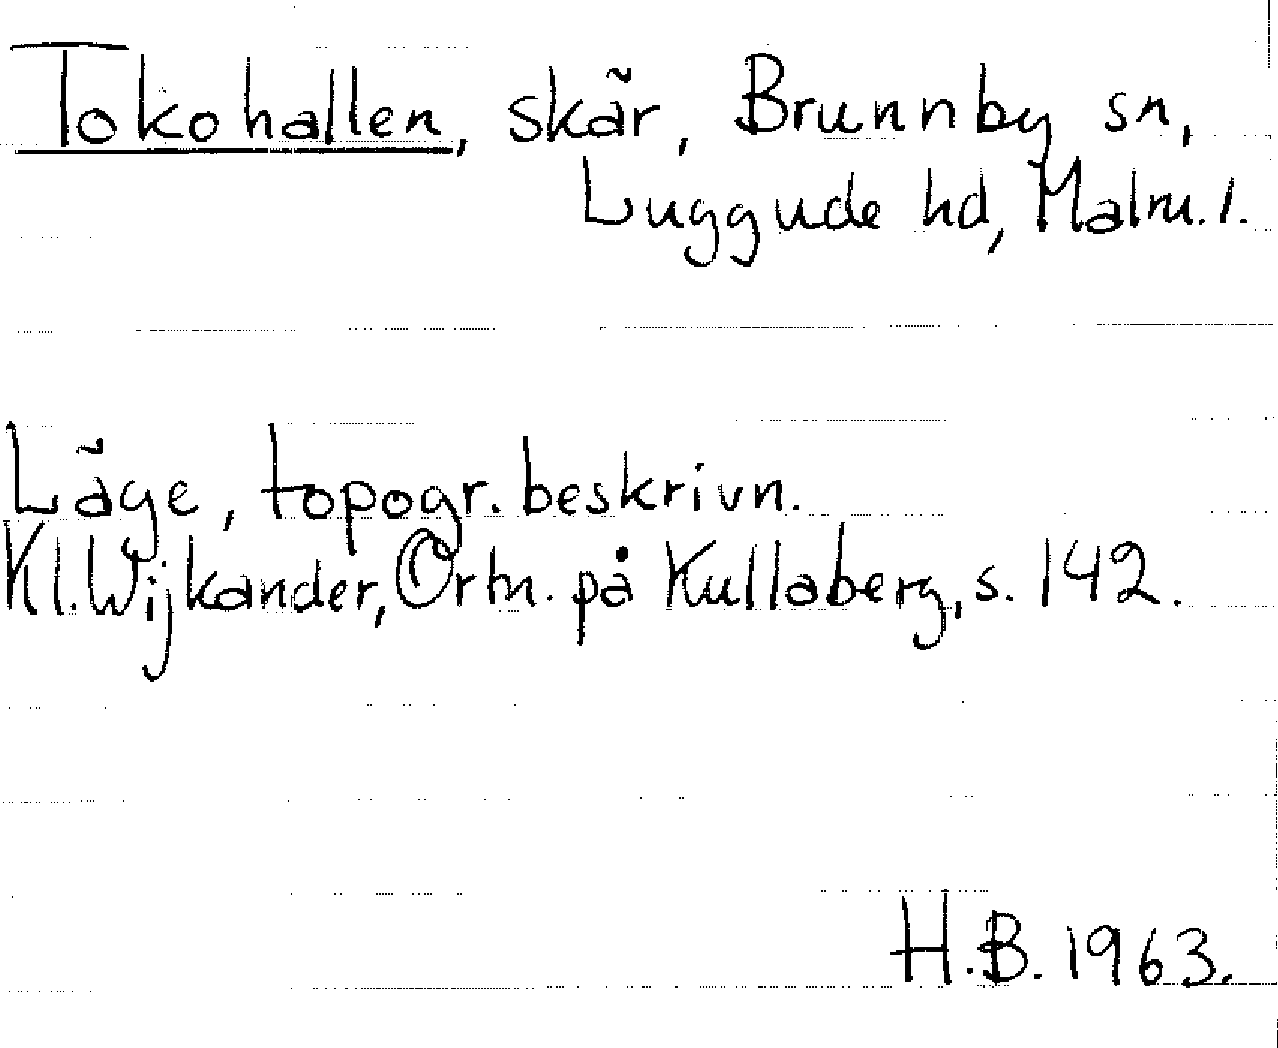 Tokohallen, skär, Brunnby sn,
Luggude hd, Malm. l.
Läge, topogr. beskrivn.
Kl. Wijkander, Ortn. på Kullaberg, s. 142.
H.B. 1963.